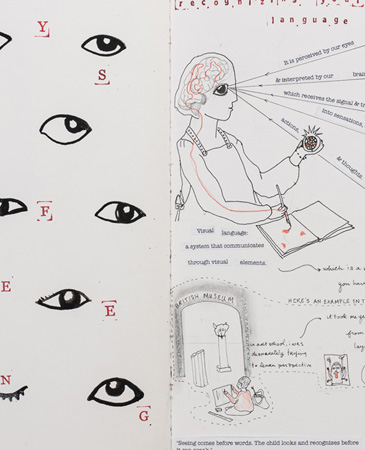 Y
S
F
E
E
N
G
recognizing
language
It is perceived by our eyes
& interpreted by our
which receives the signal &
into sensations,
actions,
& thoughts.
Visual language:
a system that communicates
through visual elements.
which is a
you
BRITISH MUSEUM
HERE'S AN EXAMPLE IN
it took me
from
in art school, i was
desperately trying
to learn perspective
'Seeing comes before words. The child looks and recognises before